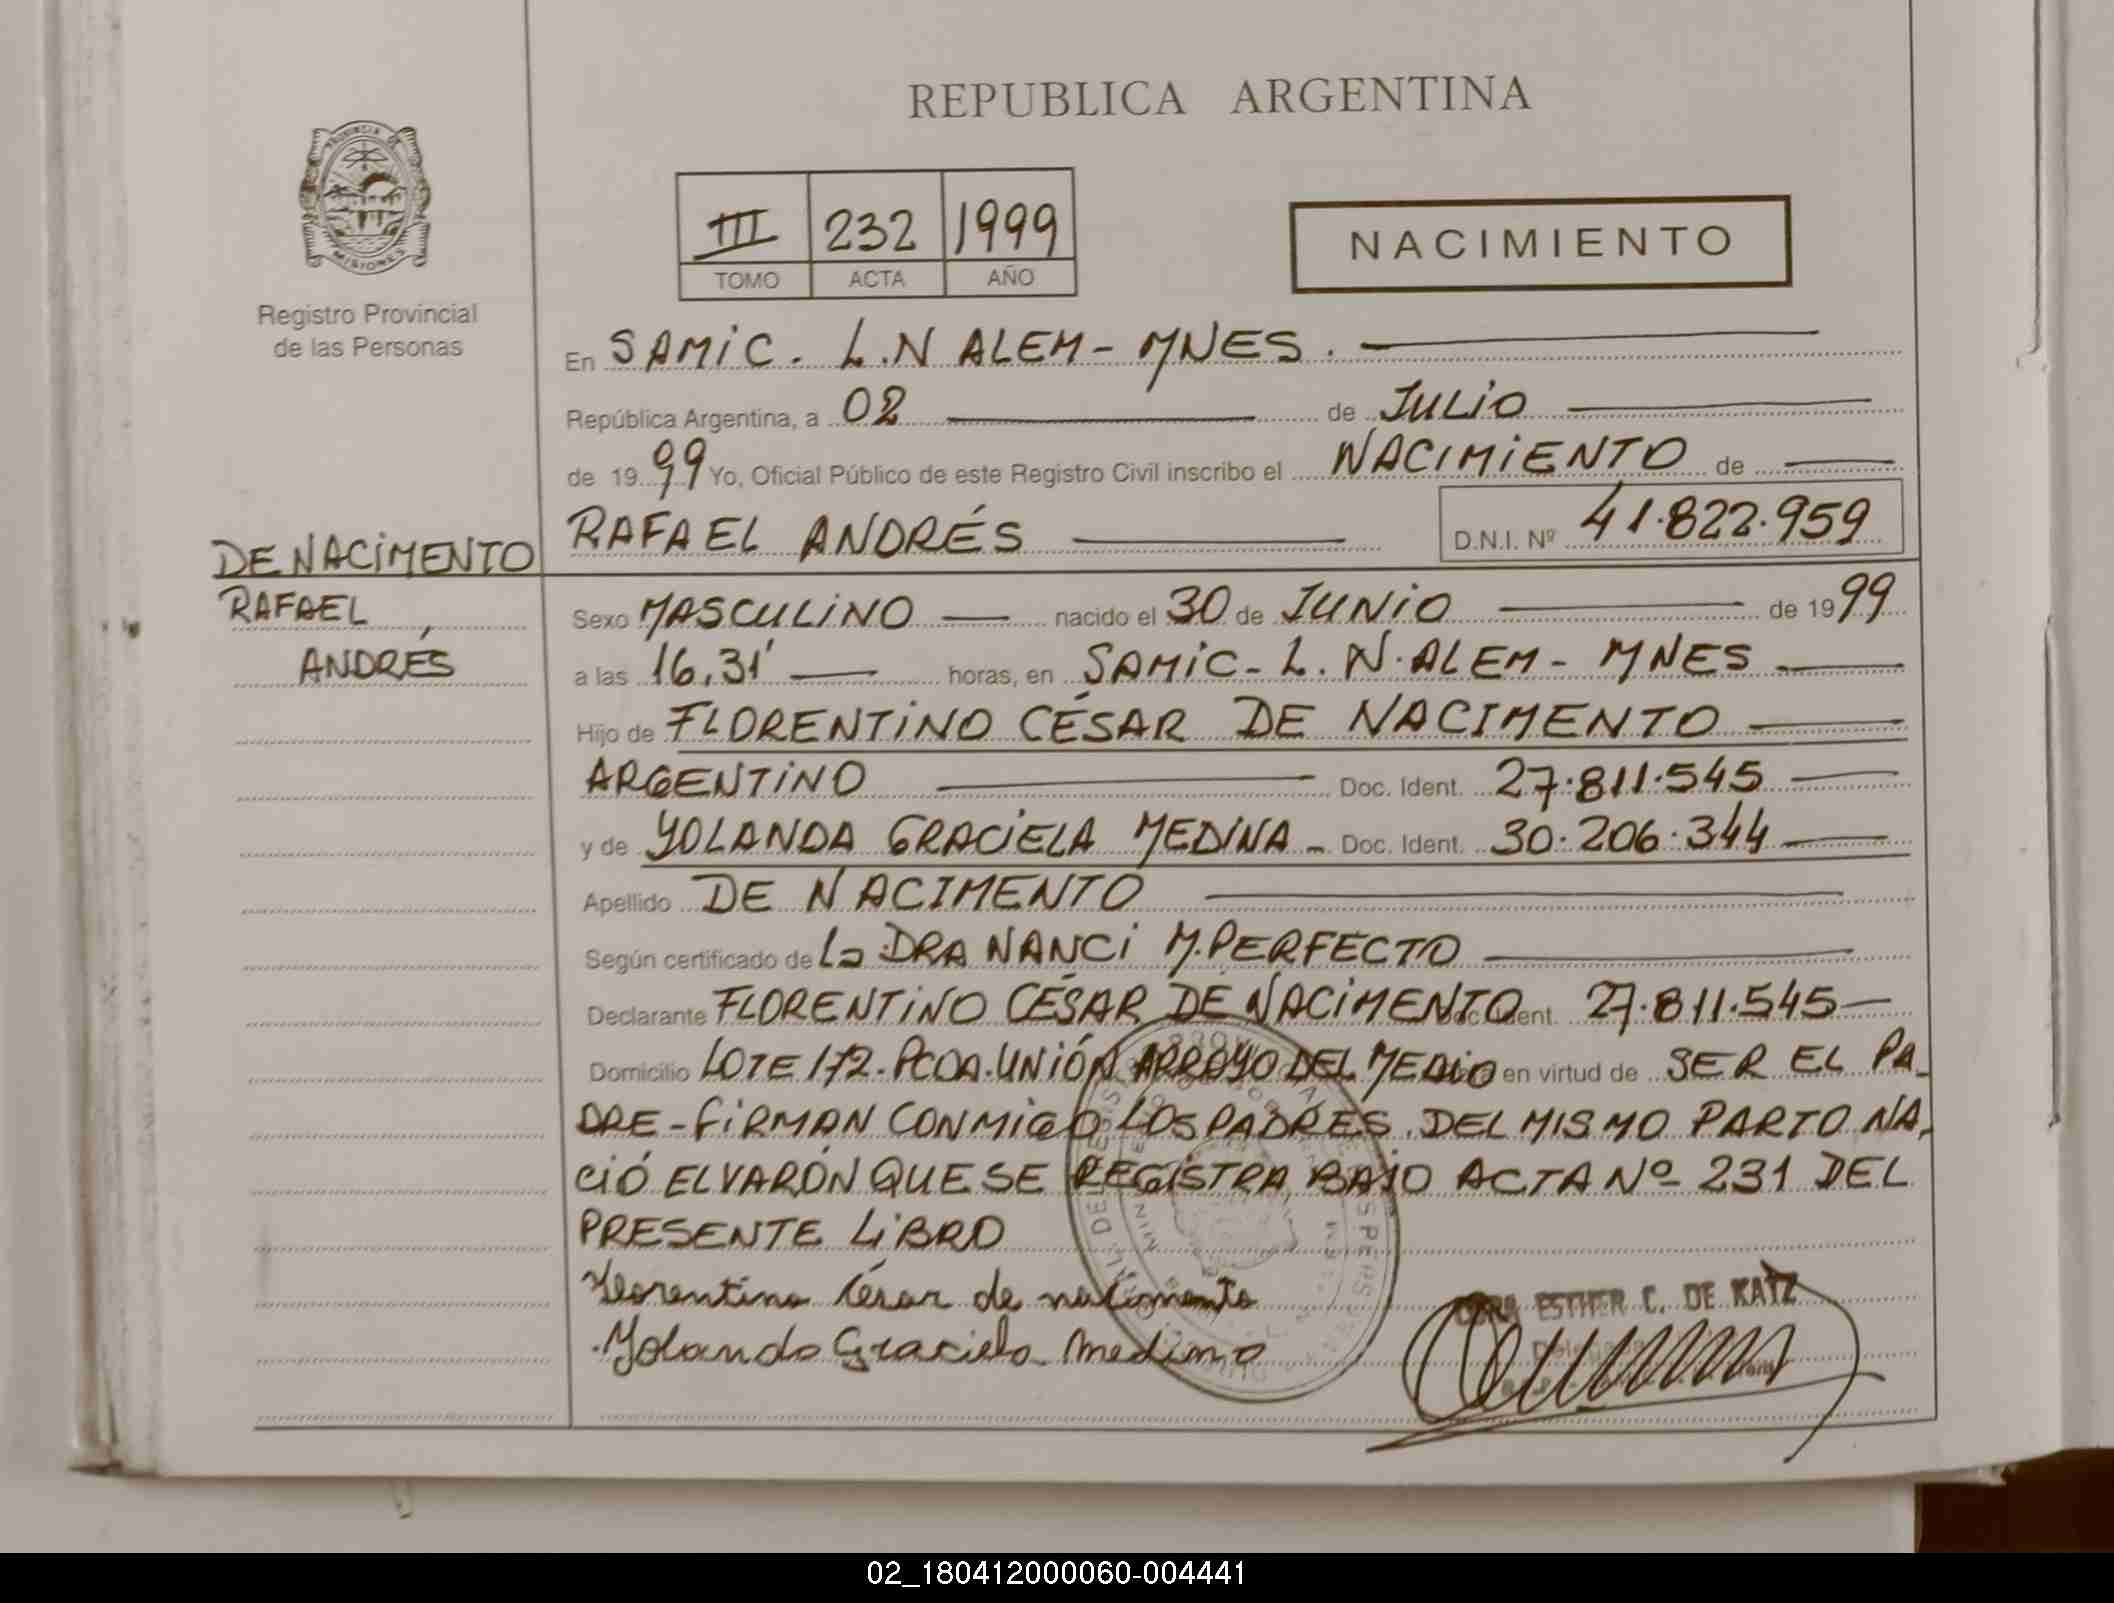 REPUBLICA ARGENTINA
PROVINCIA DE
MISIONES
Registro Provincial
de las Personas
III 232 1999
TOMO ACTA AÑO
NACIMIENTO
En SAMIC. L.N ALEM - MNES.
República Argentina, a 02 de JULIO
de 1999 Yo, Oficial Público de este Registro Civil inscribo el NACIMIENTO de
RAFAEL ANDRÉS D.N.I. Nº 41.822.959
DE NACIMENTO
RAFAEL
ANDRÉS
Sexo MASCULINO nacido el 30 de JUNIO de 1999
a las 16,31' horas, en SAMIC - L. N. ALEM - MNES
Hijo de FLORENTINO CÉSAR DE NACIMENTO
ARGENTINO Doc. Ident. 27.811.545
y de YOLANDA GRACIELA MEDINA - Doc. Ident. 30.206.344
Apellido DE NACIMENTO
Según certificado de La DRA NANCI M. PERFECTO
Declarante FLORENTINO CÉSAR DE NACIMENTO Doc. Ident. 27.811.545
Domicilio LOTE 172. PCDA. UNIÓN ARROYO DEL MEDIO en virtud de SER EL PA-
DRE - FIRMAN CONMIGO LOS PADRES. DEL MISMO PARTO NA-
CIÓ EL VARÓN QUE SE REGISTRA BAJO ACTA Nº 231 DEL
PRESENTE LIBRO
Florentino César de nacimento
Yolanda Graciela Medina
ESTHER C. DE KATZ
02_180412000060-004441